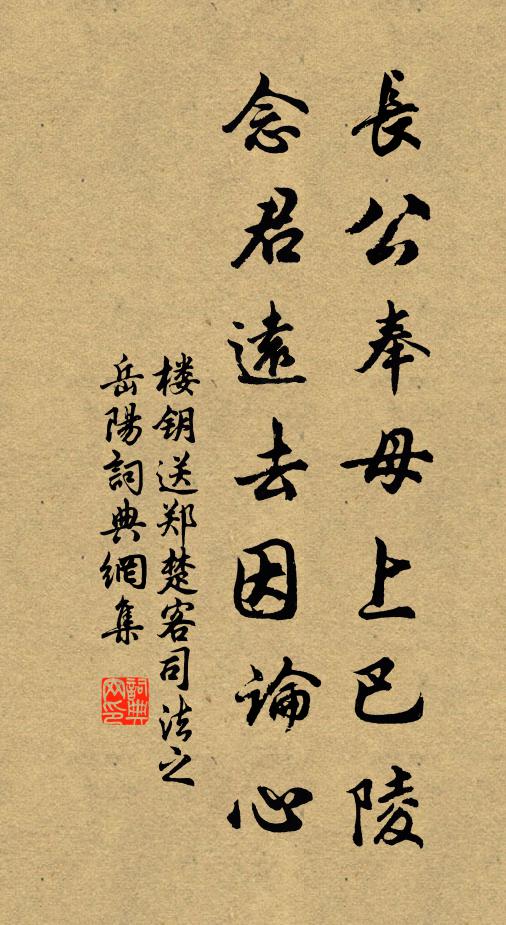 長公奉母上巴陵
念君遠去因論心
楼钥送郑楚客司法之
岳陽詞典網集
詞典網印